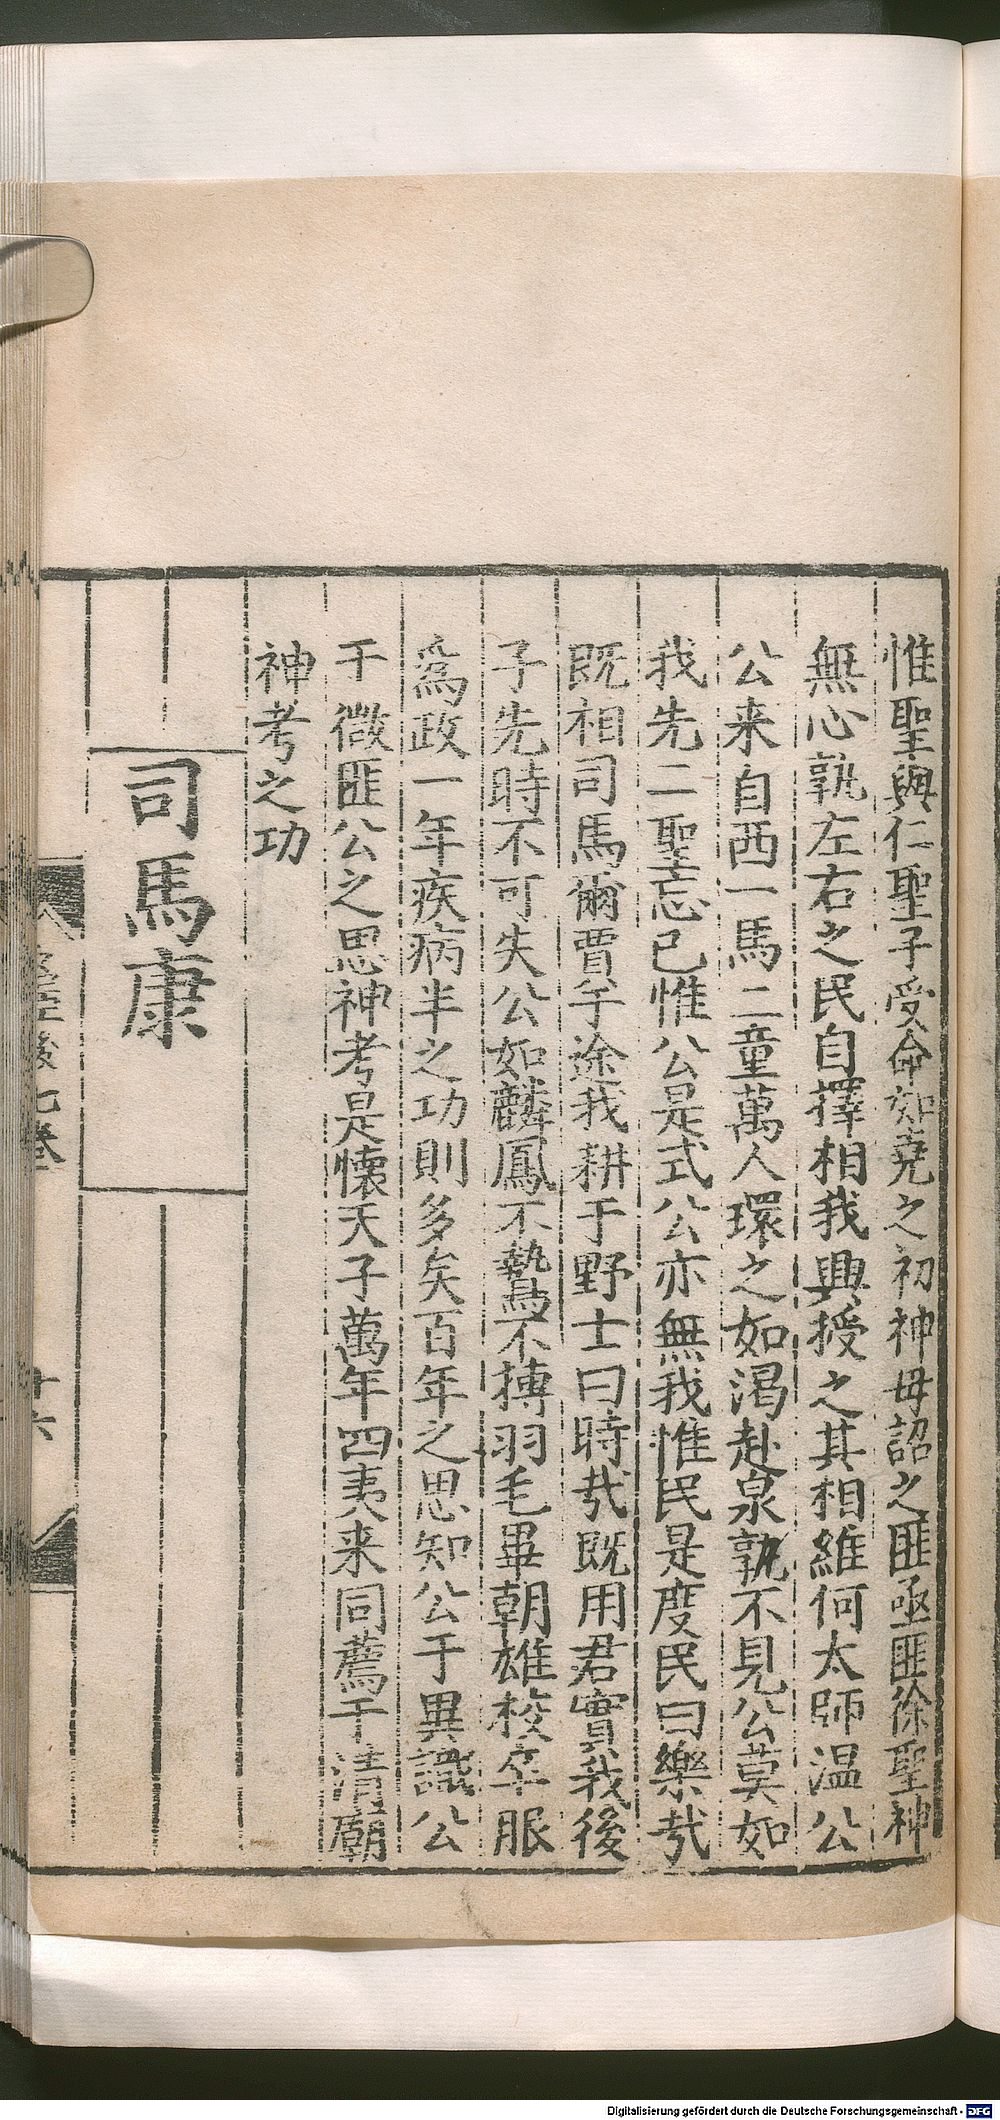 惟聖與仁聖子受命如堯之初神毋詔之匪亟匪徐聖神
無心孰左右之民自擇相我興授之其相維何太師温公
公来自西一馬二童萬人環之如渴赴泉孰不見公莫如
我先二聖忘己惟公是式公亦無我惟民是度民曰樂哉
既相司馬爾賈于途我耕于野士曰時哉既用君實我後
子先時不可失公如麟鳳不鷙不搏羽毛畢朝雄狡卒服
為政一年疾病半之功則多矣百年之思知公于異識公
于微匪公之思神考是懷天子萬年四夷来同薦于清廟
神考之功
司馬康
後七卷
廿六
Digitalisierung gefördert durch die Deutsche Forschungsgemeinschaft - DFG